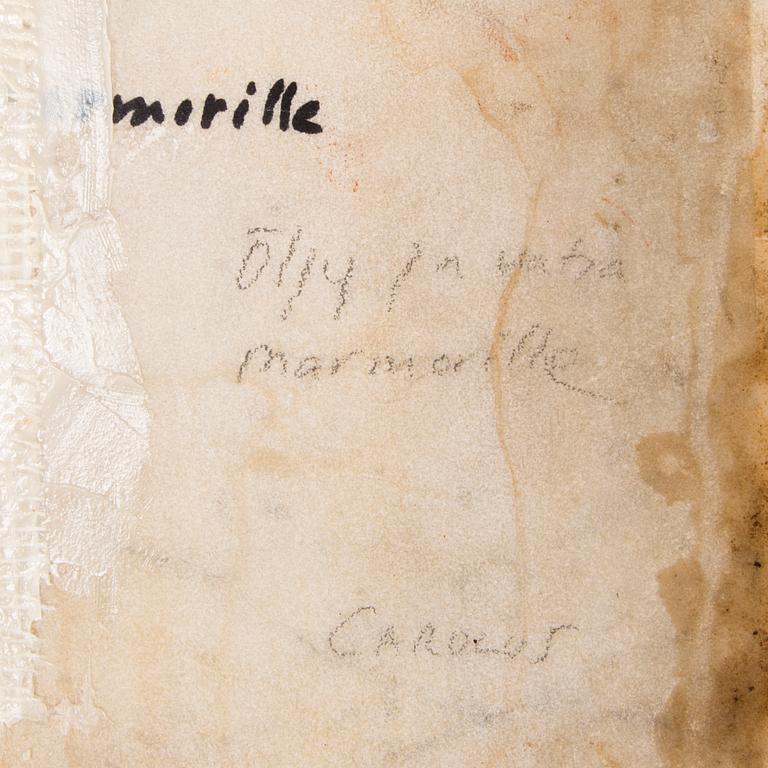 morille
Öljy ja vaha
marmorille
CAROLUS